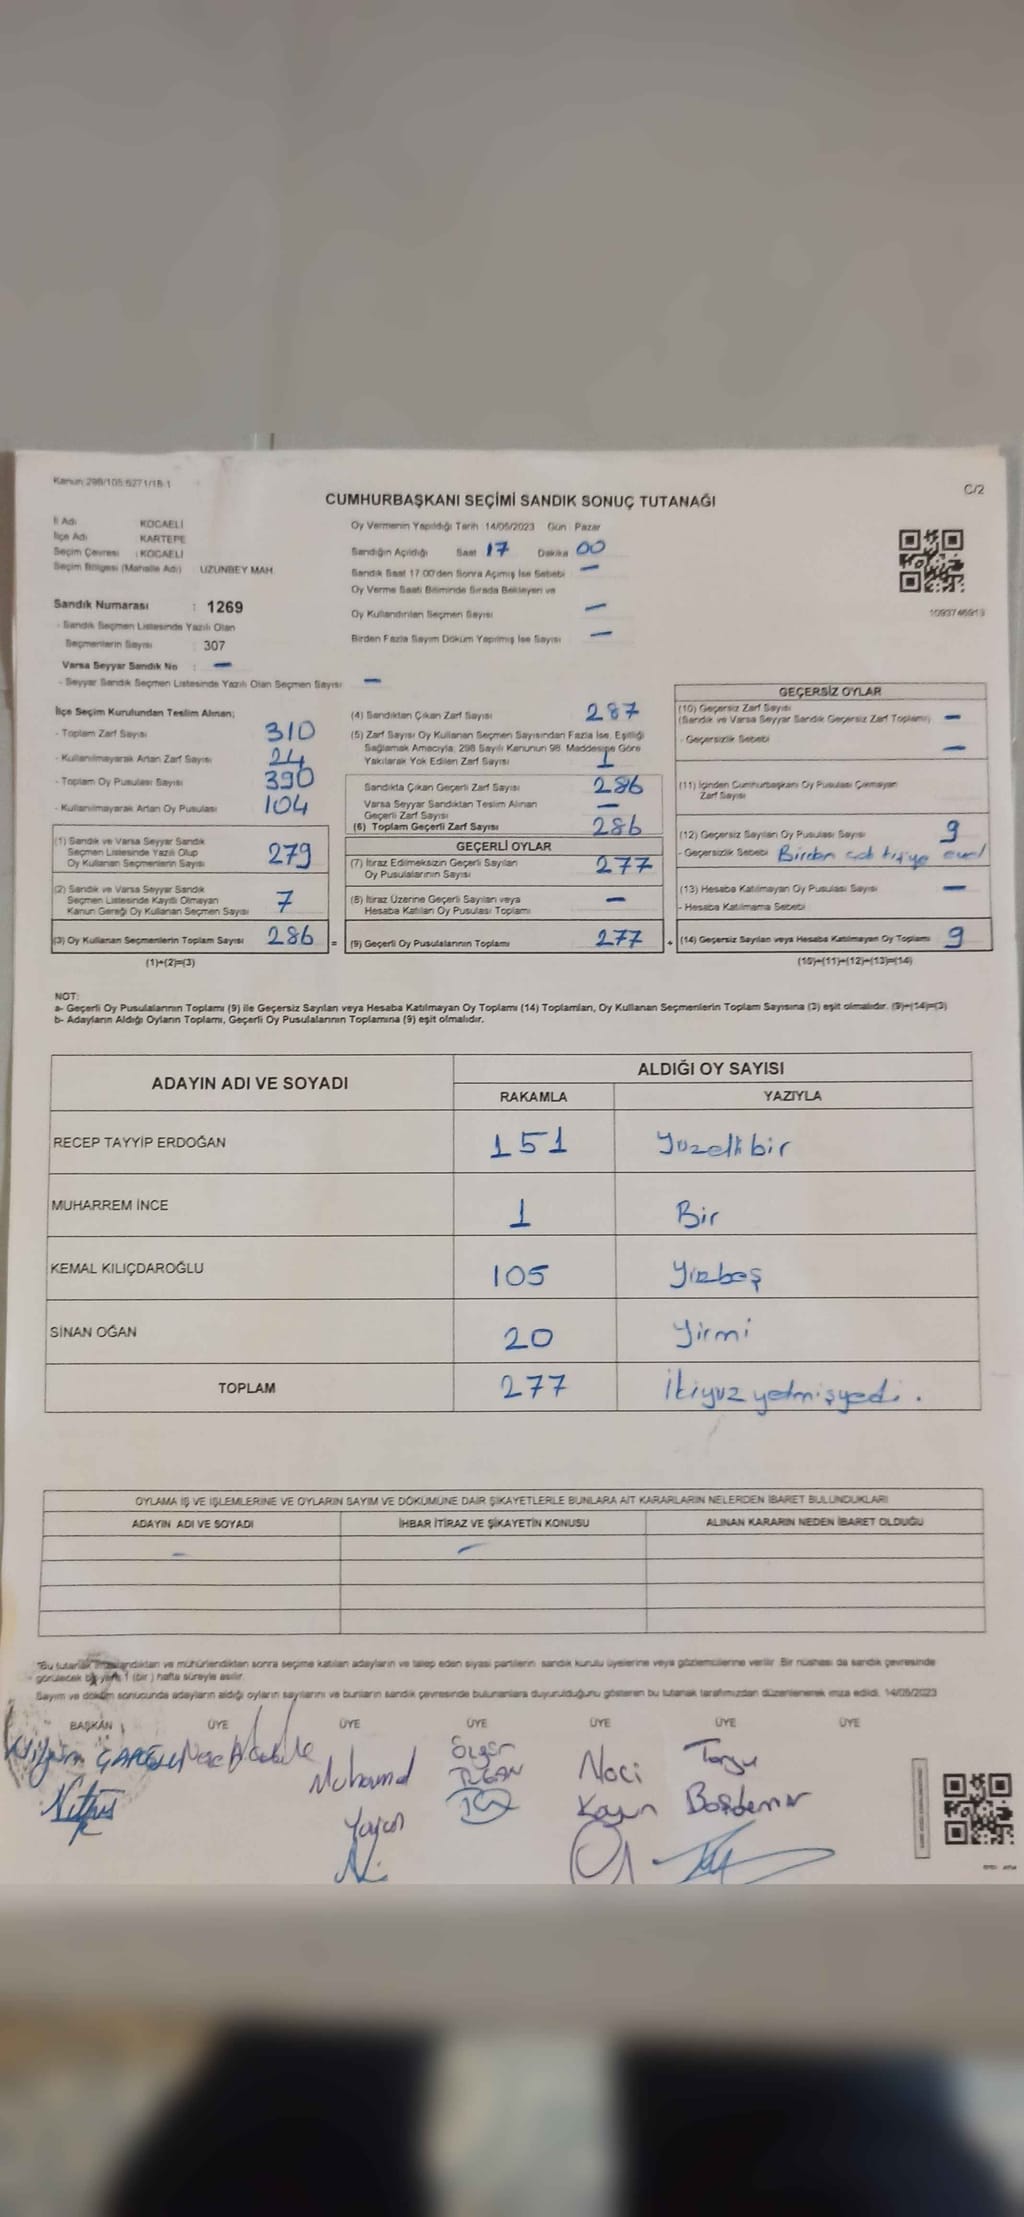 Kanun:298/105:6271/18-1
C/2
CUMHURBAŞKANI SEÇİMİ SANDIK SONUÇ TUTANAĞI
İl Adı KOCAELİ
İlçe Adı KARTEPE
Seçim Çevresi : KOCAELİ
Seçim Bölgesi (Mahalle Adı) UZUNBEY MAH.
Oy Vermenin Yapıldığı Tarih 14/05/2023 Gün : Pazar
Sandığın Açıldığı Saat 17 Dakika 00
Sandık Saat 17:00'den Sonra Açılmış İse Sebebi —
Oy Verme Saati Bitiminde Sırada Bekleyen ve
Oy Kullandırılan Seçmen Sayısı —
Birden Fazla Sayım Döküm Yapılmış İse Sayısı —
1093746913
Sandık Numarası : 1269
- Sandık Seçmen Listesinde Yazılı Olan
Seçmenlerin Sayısı : 307
Varsa Seyyar Sandık No : —
- Seyyar Sandık Seçmen Listesinde Yazılı Olan Seçmen Sayısı : —
İlçe Seçim Kurulundan Teslim Alınan;
- Toplam Zarf Sayısı 310
- Kullanılmayarak Artan Zarf Sayısı 24
- Toplam Oy Pusulası Sayısı 390
- Kullanılmayarak Artan Oy Pusulası 104
(1) Sandık ve Varsa Seyyar Sandık
Seçmen Listesinde Yazılı Olup
Oy Kullanan Seçmenlerin Sayısı 279
(2) Sandık ve Varsa Seyyar Sandık
Seçmen Listesinde Kayıtlı Olmayan
Kanun Gereği Oy Kullanan Seçmen Sayısı 7
(3) Oy Kullanan Seçmenlerin Toplam Sayısı 286 =
(1)+(2)=(3)
(4) Sandıktan Çıkan Zarf Sayısı 287
(5) Zarf Sayısı Oy Kullanan Seçmen Sayısından Fazla İse, Eşitliği
Sağlamak Amacıyla, 298 Sayılı Kanunun 98. Maddesine Göre
Yakılarak Yok Edilen Zarf Sayısı 1
Sandıkta Çıkan Geçerli Zarf Sayısı 286
Varsa Seyyar Sandıktan Teslim Alınan
Geçerli Zarf Sayısı —
(6) Toplam Geçerli Zarf Sayısı 286
GEÇERLİ OYLAR
(7) İtiraz Edilmeksizin Geçerli Sayılan
Oy Pusulalarının Sayısı 277
(8) İtiraz Üzerine Geçerli Sayılan veya
Hesaba Katılan Oy Pusulası Toplamı —
(9) Geçerli Oy Pusulalarının Toplamı 277 +
GEÇERSİZ OYLAR
(10) Geçersiz Zarf Sayısı
(Sandık ve Varsa Seyyar Sandık Geçersiz Zarf Toplamı) —
- Geçersizlik Sebebi —
(11) İçinden Cumhurbaşkanı Oy Pusulası Çıkmayan
Zarf Sayısı
(12) Geçersiz Sayılan Oy Pusulası Sayısı 9
- Geçersizlik Sebebi Birden çok kişiye evet
(13) Hesaba Katılmayan Oy Pusulası Sayısı —
- Hesaba Katılmama Sebebi
(14) Geçersiz Sayılan veya Hesaba Katılmayan Oy Toplamı 9
(10)+(11)+(12)+(13)=(14)
NOT:
a- Geçerli Oy Pusulalarının Toplamı (9) ile Geçersiz Sayılan veya Hesaba Katılmayan Oy Toplamı (14) Toplamları, Oy Kullanan Seçmenlerin Toplam Sayısına (3) eşit olmalıdır. (9)+(14)=(3)
b- Adayların Aldığı Oyların Toplamı, Geçerli Oy Pusulalarının Toplamına (9) eşit olmalıdır.
ADAYIN ADI VE SOYADI ALDIĞI OY SAYISI
RAKAMLA YAZIYLA
RECEP TAYYİP ERDOĞAN 151 Yüzellibir
MUHARREM İNCE 1 Bir
KEMAL KILIÇDAROĞLU 105 Yüzbeş
SİNAN OĞAN 20 Yirmi
TOPLAM 277 İkiyüz yetmişyedi.
OYLAMA İŞ VE İŞLEMLERİNE VE OYLARIN SAYIM VE DÖKÜMÜNE DAİR ŞİKAYETLERLE BUNLARA AİT KARARLARIN NELERDEN İBARET BULUNDUKLARI
ADAYIN ADI VE SOYADI İHBAR İTİRAZ VE ŞİKAYETİN KONUSU ALINAN KARARIN NEDEN İBARET OLDUĞU
— —
"Bu tutanak imzalandıktan ve mühürlendikten sonra seçime katılan adayların ve talep eden siyasi partilerin sandık kurulu üyelerine veya gözlemcilerine verilir. Bir nüshası da sandık çevresinde
görülecek bir yere 1 (bir) hafta süreyle asılır.
Sayım ve döküm sonucunda adayların aldığı oyların sayılarını ve bunların sandık çevresinde bulunanlara duyurulduğunu gösteren bu tutanak tarafımızdan düzenlenerek imza edildi. 14/05/2023
BAŞKAN ÜYE ÜYE ÜYE ÜYE ÜYE ÜYE
Naci